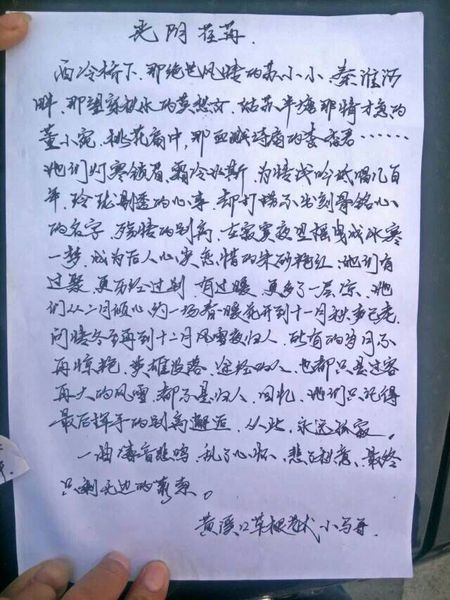 光阴荏苒.
西冷桥下,那绝世风情的苏小小,秦淮河
畔,那望穿秋水的黄想文,姑苏半塘那情才意的
董小宛,桃花扇中,那血溅诗扇的李香君……
她们灯寒锁眉,霜冷水斯,为情浅吟低唱几百
年,玲珑剔透的心事,却打捞不出刻骨铭心
的名字,残情的别离,在寂寞夜里摇曳成冰寒
一梦,成为后人心里点惜的朱砂艳红,她们有
过聚,更历经过别,有过暖,更多了一层凉,她
们从二月倾心的一场春暖花开到十一月秋声已老,
问情今可再到十二月风雪夜归人,所有的岁月不
再惊艳,梦难没落,途经的人,也都只是过客
再大的风雪,都不是归人,回忆,她们只记得
最后挥手的别离邂逅,从此,永远孤寂。
一曲凄音悲鸣,乱了心怀,悲了秋意,最终
只剩无边的萧索。
黄溪口草根老代 小马哥